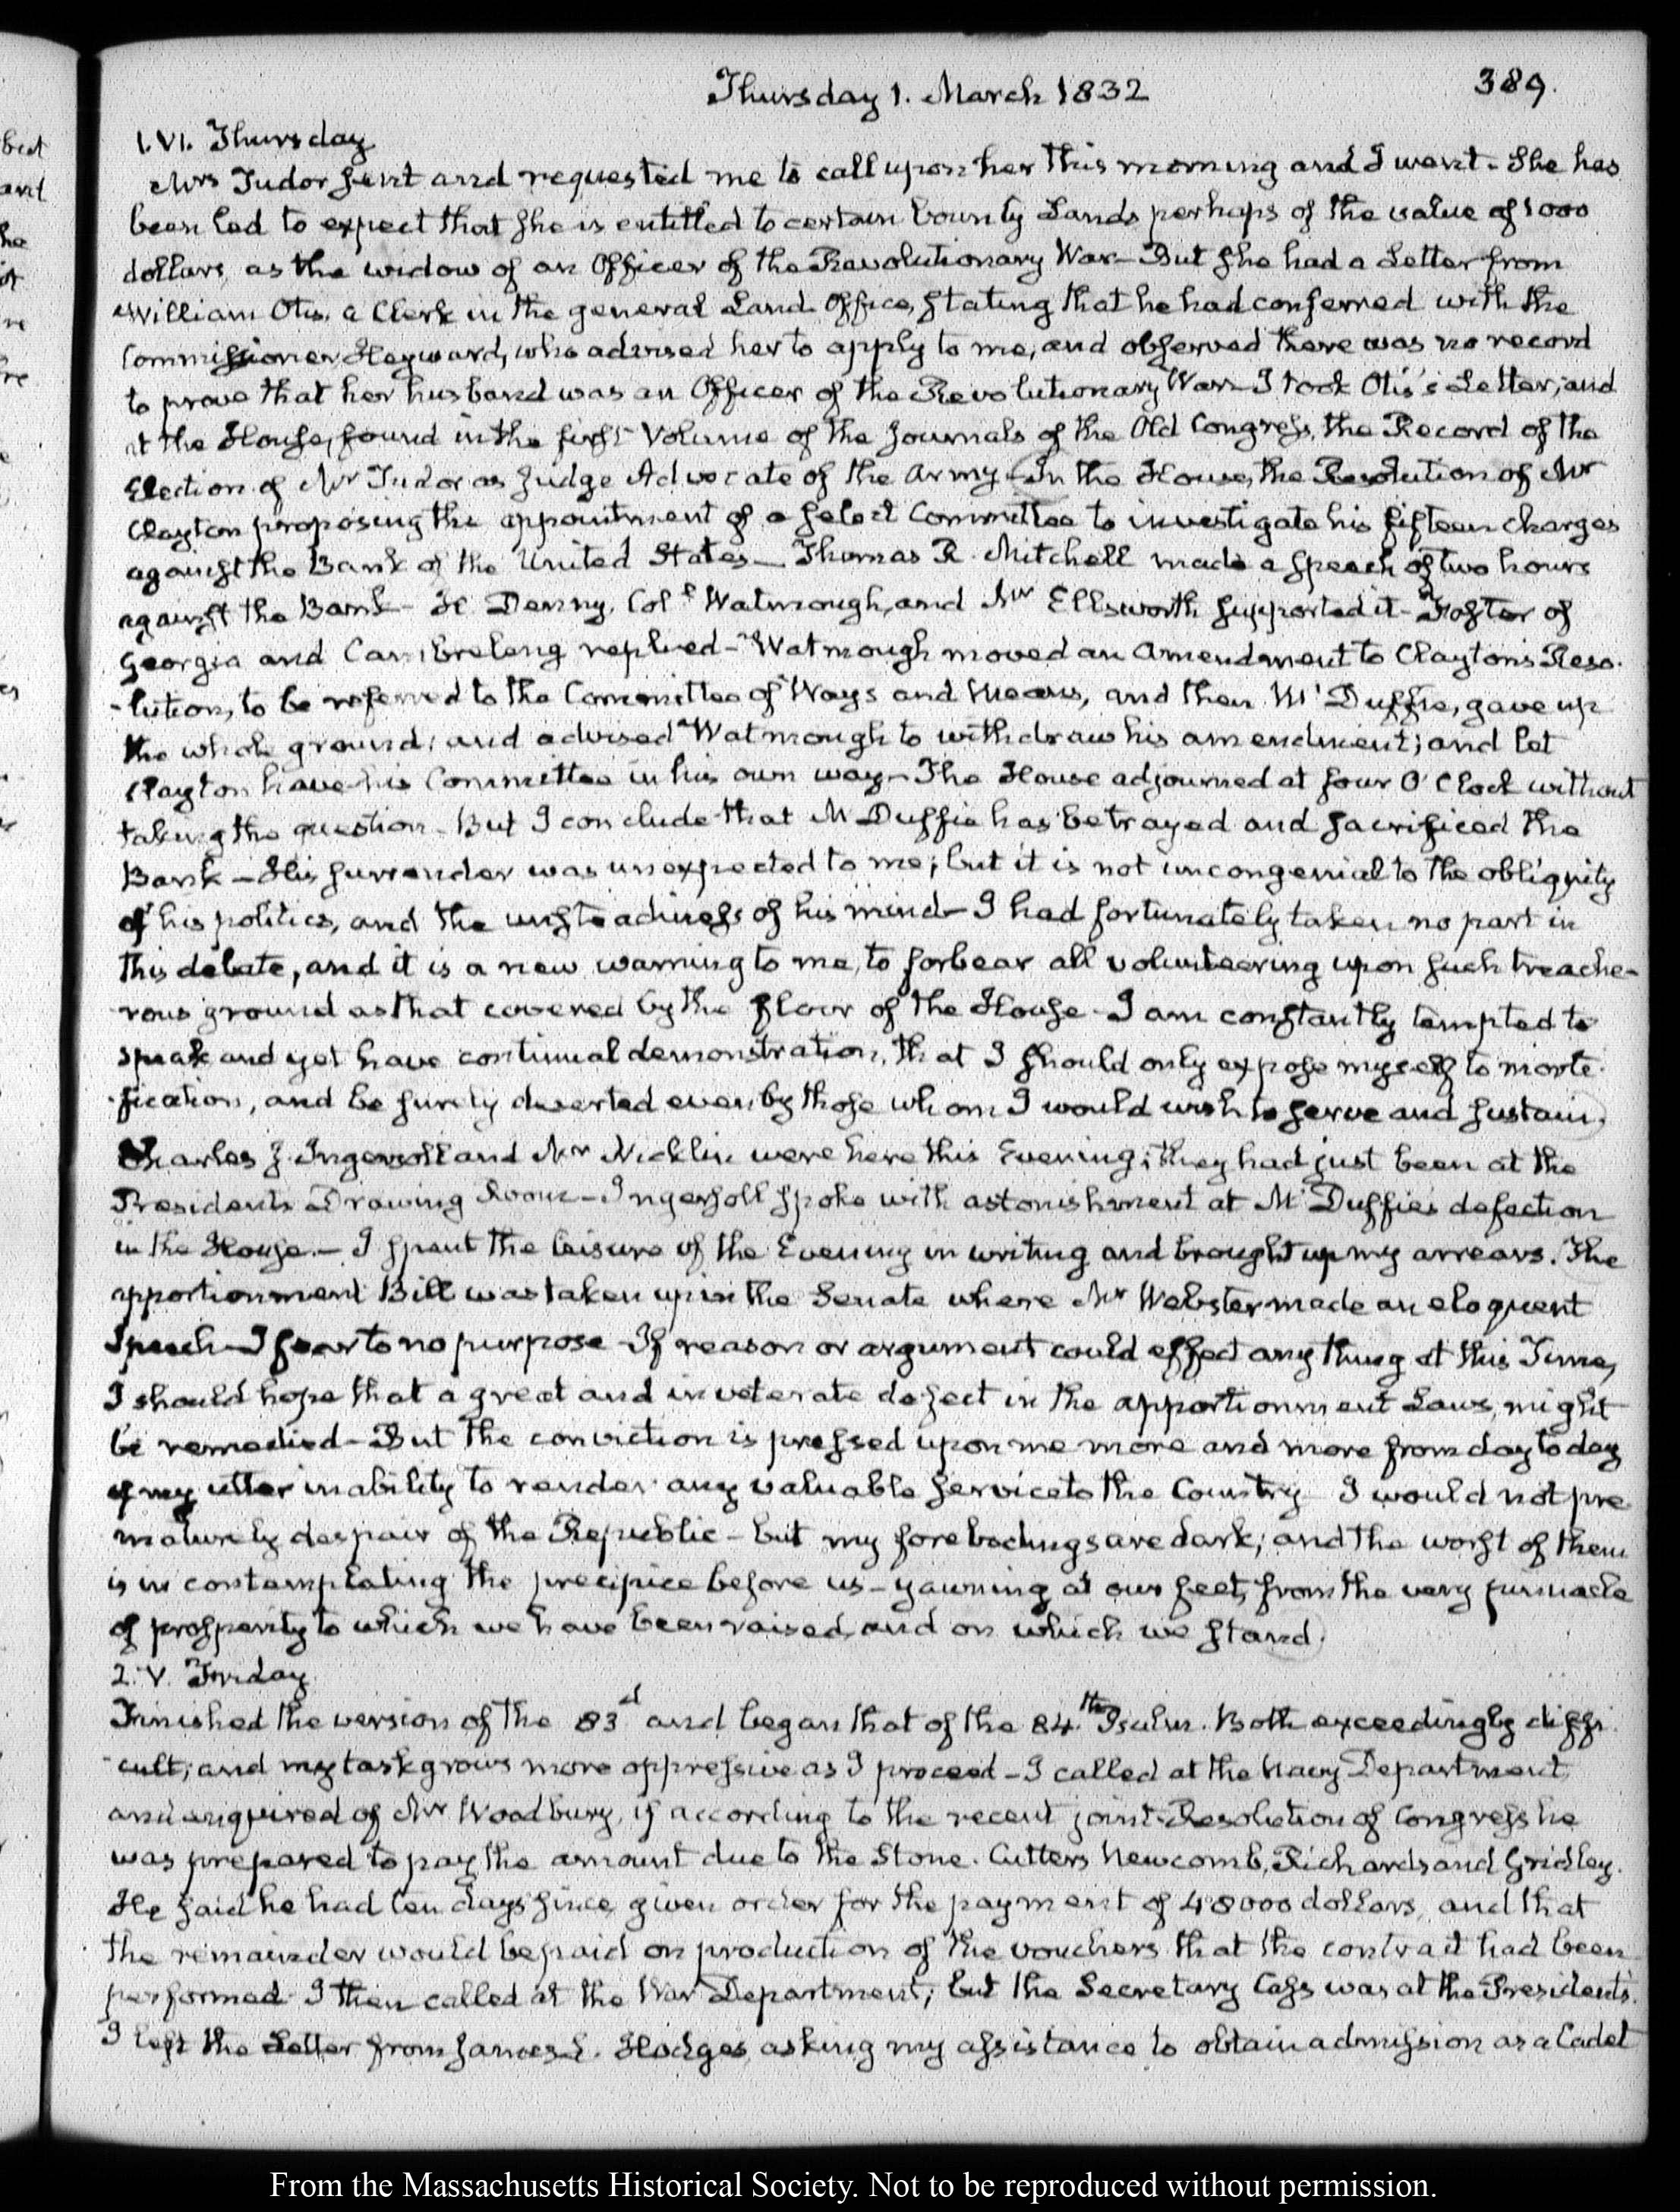 Thursday 1. March 1832
389.
1. VI. Thursday
Mrs Tudor sent and requested me to call upon her this morning and I went - She has
been led to expect that she is entitled to certain bounty Lands perhaps of the value of 1000
dollars, as the widow of an Officer of the Revolutionary War - But she had a Letter from
William Otis, a Clerk in the general Land Office, stating that he had conferred with the
Commissioner Hayward, who advised her to apply to me, and observed there was no record
to prove that her husband was an Officer of the Revolutionary War - I took Otis's Letter, and
at the House, found in the first Volume of the Journals of the Old Congress, the Record of the
Election of Mr Tudor as Judge Advocate of the Army - In the House, the Resolution of Mr
Clayton proposing the appointment of a select Committee to investigate his fifteen charges
against the Bank of the United States - Thomas R. Mitchell made a speech of two hours
against the Bank - H. Denny, Coll Watmough, and Mr Ellsworth supported it - Foster of
Georgia and Cambreleng replied - Watmough moved an Amendment to Clayton's Reso-
-lution, to be referred to the Committee of Ways and Means, and then Mc Duffie, gave up
the whole ground; and advised Watmough to withdraw his amendment; and let
Clayton have his Committee in his own way - The House adjourned at four O'Clock without
taking the question - But I conclude that Mc Duffie has betrayed and sacrificed the
Bank - His surrender was unexpected to me; but it is not uncongenial to the obliquity
of his politics, and the unsteadiness of his mind - I had fortunately taken no part in
this debate, and it is a new warning to me, to forbear all volunteering upon such treache-
rous ground as that covered by the floor of the House - I am constantly tempted to
speak and yet have continual demonstration, that I should only expose myself to morti-
-fication, and be surely deserted even by those whom I would wish to serve and sustain.
Charles J. Ingersoll and Mr Nicklin were here this Evening; they had just been at the
Presidents Drawing Room - Ingersoll spoke with astonishment at Mc Duffie's defection
in the House. - I spent the leisure of the Evening in writing and brought up my arrears. The
apportionment Bill was taken up in the Senate where Mr Webster made an eloquent
Speech - I fear to no purpose - If reason or argument could effect any thing at this Time,
I should hope that a great and inveterate defect in the apportionment Laws, might
be remedied - But the conviction is pressed upon me more and more from day to day
of my utter inability to render any valuable service to the Country I would not pre
maturely despair of the Republic - but my forebodings are dark; and the worst of them
is in contemplating the precipice before us - yawning at our feet, from the very pinnacle
of prosperity to which we have been raised, and on which we stand.
2. V. Friday.
Finished the version of the 83d and began that of the 84th Psalm. Both exceedingly diffi-
-cult; and my task grows more oppressive as I proceed - I called at the Navy Department,
and enquired of Mr Woodbury, if according to the recent joint Resolution of Congress he
was prepared to pay the amount due to the Stone-Cutters Newcomb, Richards and Gridley.
He said he had ten days since, given order for the payment of 48000 dollars, and that
the remainder would be paid on production of the vouchers that the contract had been
performed - I then called at the War Department; but the Secretary Cass was at the Presidents.
I left the Letter from James L. Hodges, asking my assistance to obtain admission as a Cadet
From the Massachusetts Historical Society. Not to be reproduced without permission.